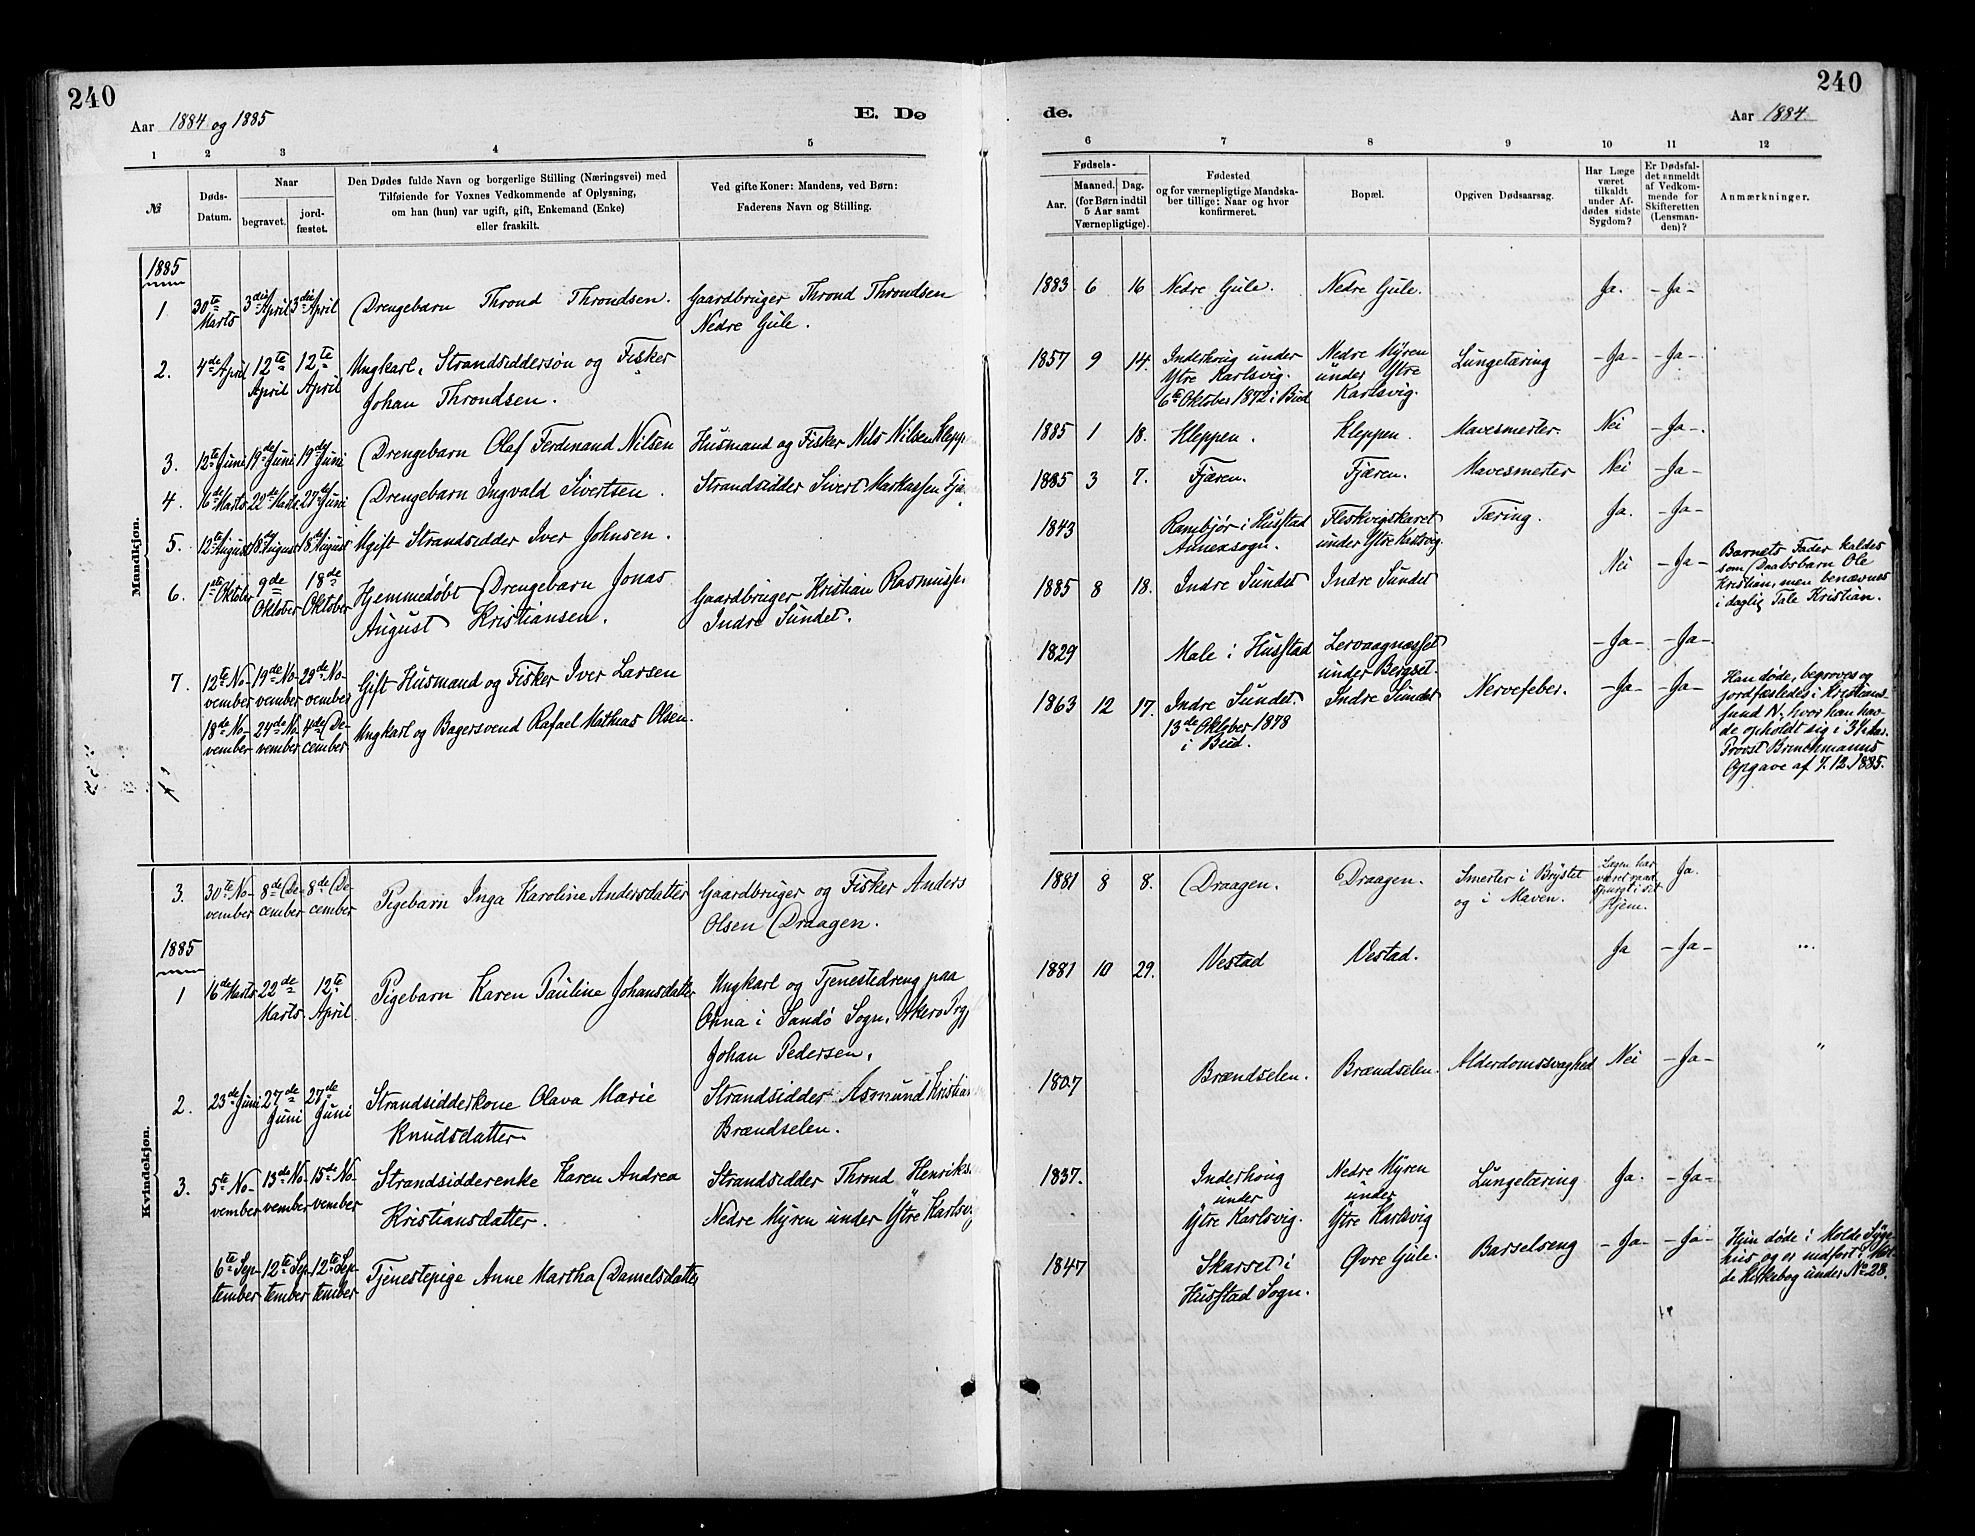 240
Aar 1884 og 1885
E. Dø
1 2 3 4 5
№
Døds-
Datum.
Naar
begravet.
jord-
fæstet.
Den Dødes fulde Navn og borgerlige Stilling (Næringsvei) med
Tilføiende for Voxnes Vedkommende af Oplysning,
om han (hun) var ugift, gift, Enkemand (Enke)
eller fraskilt.
Ved gifte Koner: Mandens, ved Børn:
Faderens Navn og Stilling.
Mandkjøn.
1885
1 30te Marts 3die April 3die April Drengebarn Thrond Throndsen. Gaardbruger Thrond Throndsen
Nedre Gule.
2. 4de April 12te April 12te April Ungkarl, Strandsiddersøn og Fisker
Johan Throndsen.
3. 12te Juni 19de Juni 19de Juni Drengebarn Olaf Ferdinand Nilsen Husmand og Fisker Nils Nilsen Klepp
4. 16de Marts 22de Marts 27de Juni Drengebarn Ingvald Sivertsen. Strandsidder Sivert Markussen Fjæ
5. 12te August 18de August 18de August Ugift Strandsidder Iver Johnsen.
6. 1ste Oktober 9de Oktober 18de Oktober Hjemmedøbt Drengebarn Jonas
August Kristiansen. Gaardbruger Kristian Rasmusse
Indre Sundet.
7. 12te No-
vember 19de No-
vember 29de No-
vember Gift Husmand og Fisker Iver Larsen
18de No-
vember 24de No-
vember 4de De-
cember Ungkarl og Bagersvend Rafael Mathias Olsen.
Kvindekjøn.
3. 30te No-
vember 8de De-
cember 8de De-
cember Pigebarn Inga Karoline Andersdatter Gaardbruger og Fisker Anders
Olsen Draagen.
1885
1 16de Marts 22de Marts 12te April Pigebarn Karen Pauline Johansdatter Ungkarl og Tjenestedreng paa
Ohna i Sandø Sogn, Akerø Prg,
Johan Pedersen.
2. 23de Juni 27de Juni 27de Juni Strandsidderkone Olava Marie
Knudsdatter Strandsidder Asmund Kristian
Brændselen.
3. 5te No-
vember 13de No-
vember 15de No-
vember Strandsidderenke Karen Andrea
Kristiansdatter. Strandsidder Thrond Henriks
Nedre Myren under Ytre Karlsvig
6te Sep-
tember 12te Sep-
tember 12te Sep-
tember Tjenestepige Anne Martha Danielsdatter
240
de.
Aar 1884
6 7 8 9 10 11 12
Fødsels-
Aar.
Maaned. Dag.
(for Børn indtil
5 Aar samt
Værnepligtige).
Fødested
og for værnepligtige Mandska-
ber tillige: Naar og hvor
konfirmeret.
Bopæl.
Opgiven Dødsaarsag.
Har Læge
været
tilkaldt
under Af-
dødes sidste
Sygdom?
Er Dødsfal-
det anmeldt
af Vedkom-
mende for
Skifteretten
(Lensman-
den)?
Anmærkninger.
1883 6 16 Nedre Gule. Nedre Gule. Ja. - Ja -
1857 9 14. Inderhoug under
Ytre Karlsvig.
6te Oktober 1872 i Bud Nedre Myren
under Ytre
Karlsvig. Lungetæring - Ja - - Ja -
1885 1 18. Kleppen. Kleppen. Mavesmerter. Nei - Ja -.
1885 3 7. Fjæren. Fjæren. Mavesmerter Nei - Ja -
1843 Rambjør i Husstad
Annexsogn. Fleskvigskaret
under Ytre Karlsvig. Tæring. Ja. - Ja -
1885 8 18. Indre Sundet Indre Sundet Nei - Ja - Barnets Fader kaldes
som Daabsbarn Ole
Kristian, men benævnes
i daglig Tale Kristian.
1829 Male i Husstad Lervaagnæsset
under Bergset. - Ja - - Ja -
1863 12 17. Indre Sundet.
13de Oktober 1878
i Bud. Indre Sundet Nervefeber. - Ja - - Ja - Han døde, begroves og
jordfæstedes i Kristians-
sund N., hvor han hav-
de opholdt sig i 3½ Aar.
Provst Brinchmanns
Opgave af 7.12.1885.
1881 8 8. Draagen. Draagen. Smerter i Brystet
og i Maven. Lægen har
været raad-
spurgt i sit
Hjem. Ja.
1881 10 29. Vestad Vestad. Ja - Ja - "
1807 Brændselen. Brændselen. Alderdomssvaghed Nei - Ja - "
1837. Inderhoug
under
Ytre Karlsvig. Nedre Myren
under
Ytre Karlsvig Lungetæring Ja. - Ja -
1847 Skarset i
Husstad Sogn. Øvre Gule. Barselseng - Ja - - Ja - Hun døde i Molde Syge-
hus og er indført i Mol-
de Kirkebog under No 28.